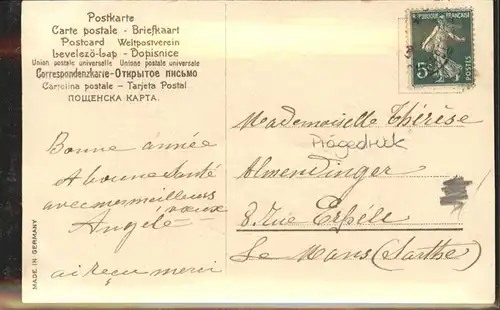 Postkarte
Carte postale - Briefkaart
Postcard Weltpostverein
Levelező-Lap - Dopisnice
Union postale universelle Unione postale universale
Correspondenzkarte - Открытое письмо
Cartolina postale - Tarjeta Postal
ПОЩЕНСКА КАРТА.
REPUBLIQUE FRANÇAISE
5c
POSTES
Bonne année
A bonne Santé
avec mes meilleurs
vœux
Angèle
ai reçu merci
MADE IN GERMANY
Mademoiselle Thérèse
Prägedruck
Almendinger
8 Rue
Le Mans (Sarthe)